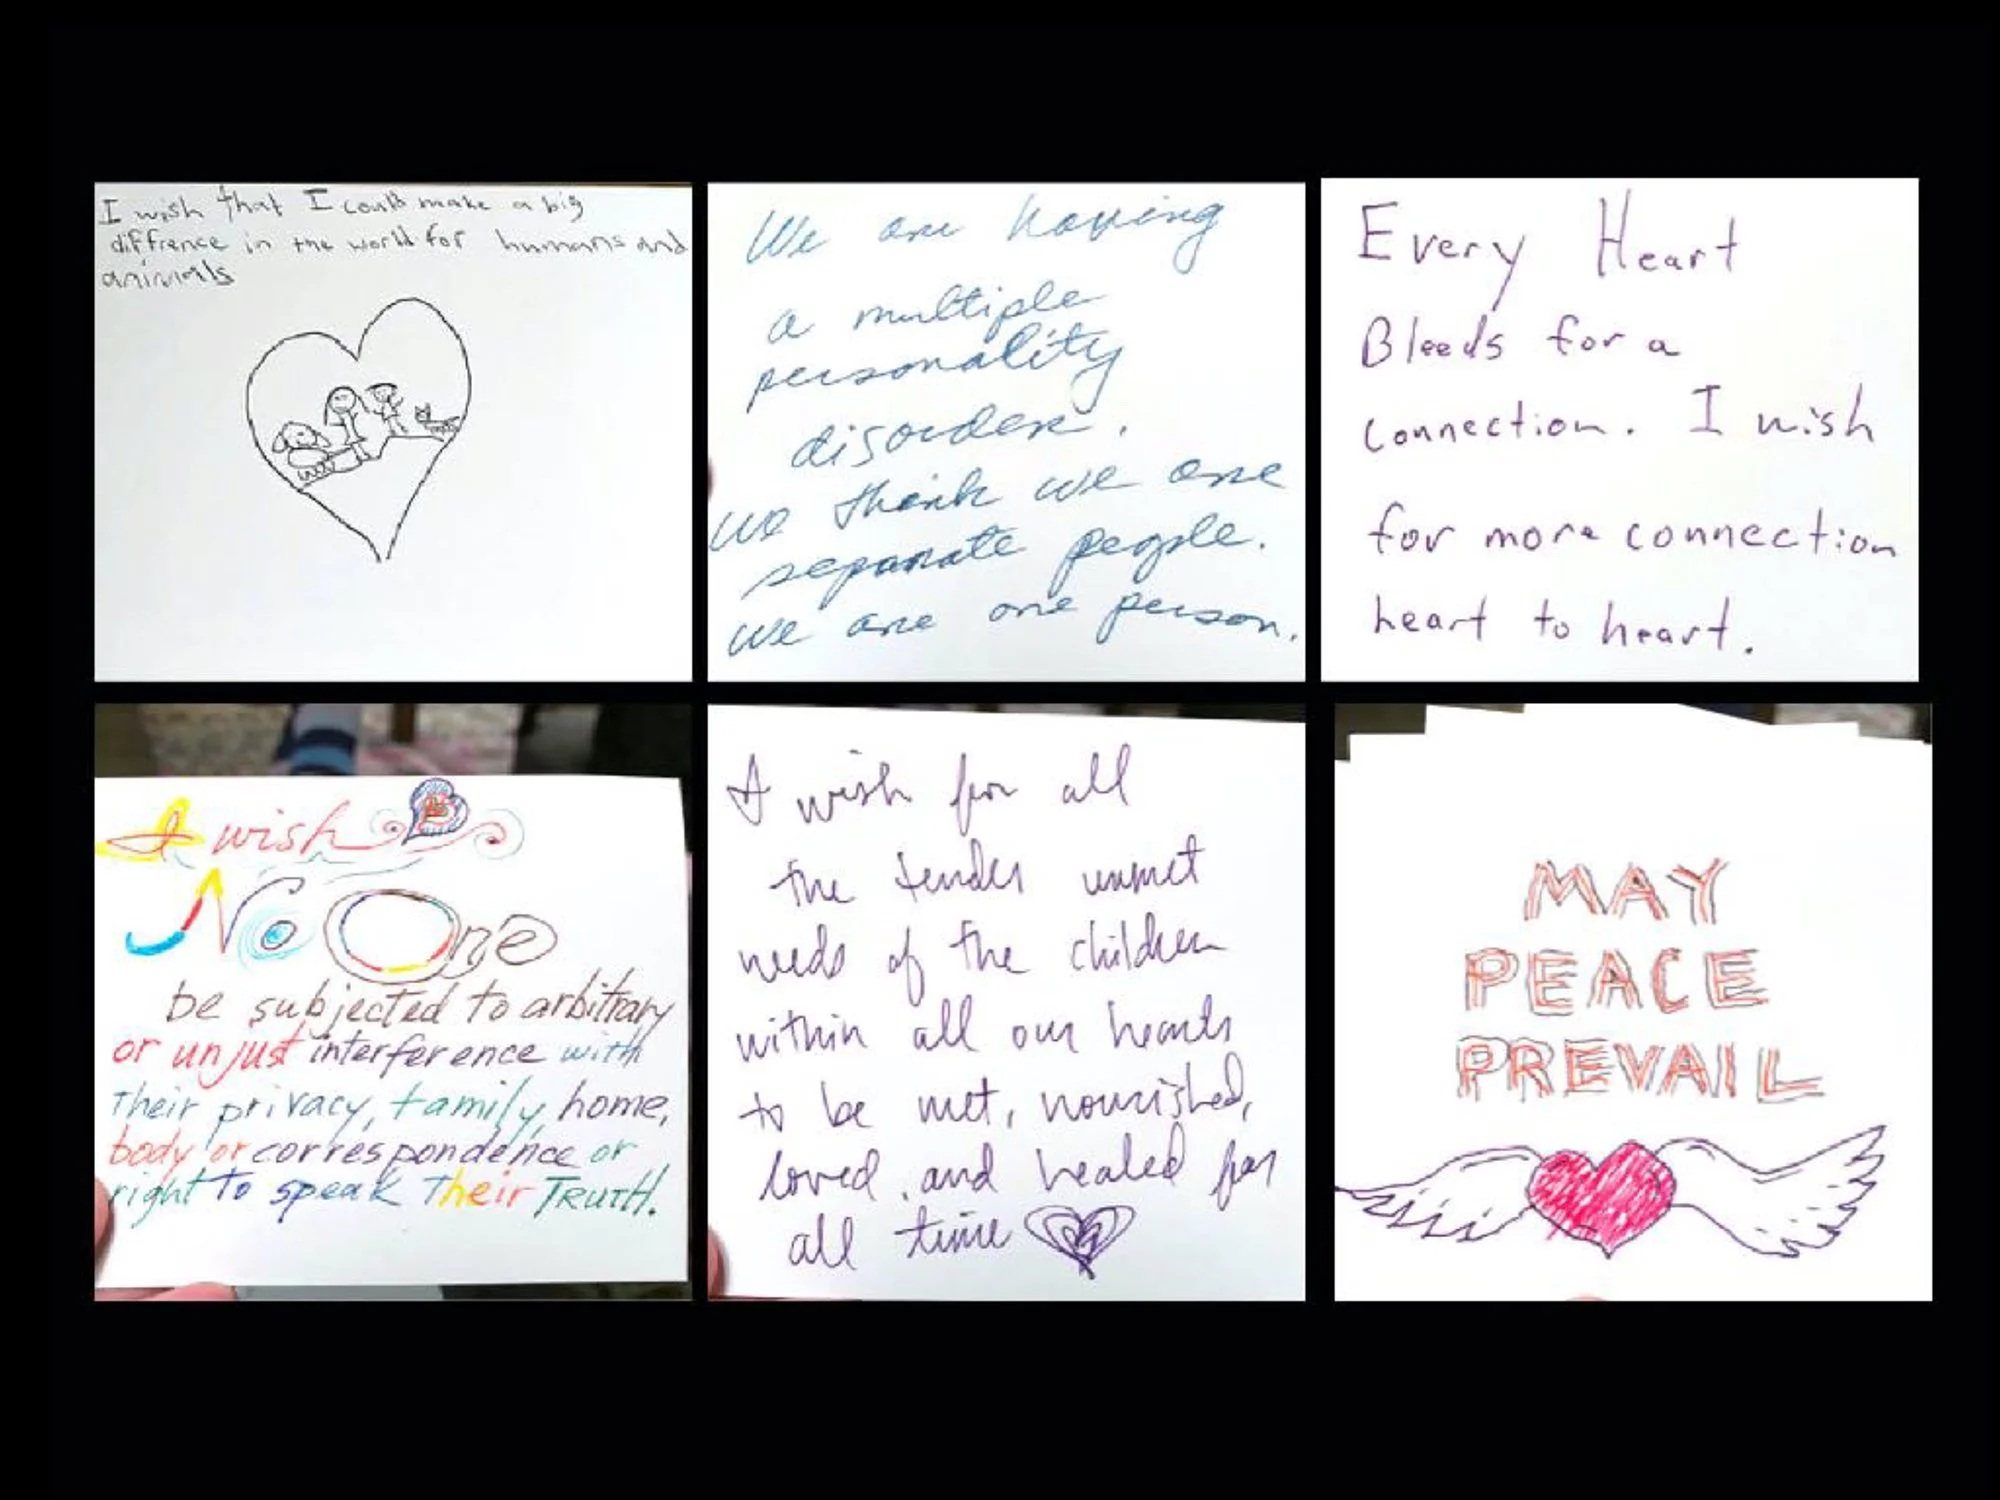 I wish that I could make a big
diffrence in the world for humans and
animals
We are having
a multiple
personality
disorder.
We think we are
separate people.
We are one person.
Every Heart
Bleeds for a
connection. I wish
for more connection
heart to heart.
I wish
No One
be subjected to arbitrary
or unjust interference with
their privacy, family, home,
body or correspondence or
right to speak their TRUTH.
I wish for all
the tender unmet
needs of the children
within all our hearts
to be met, nourished,
loved, and healed for
all time
MAY
PEACE
PREVAIL